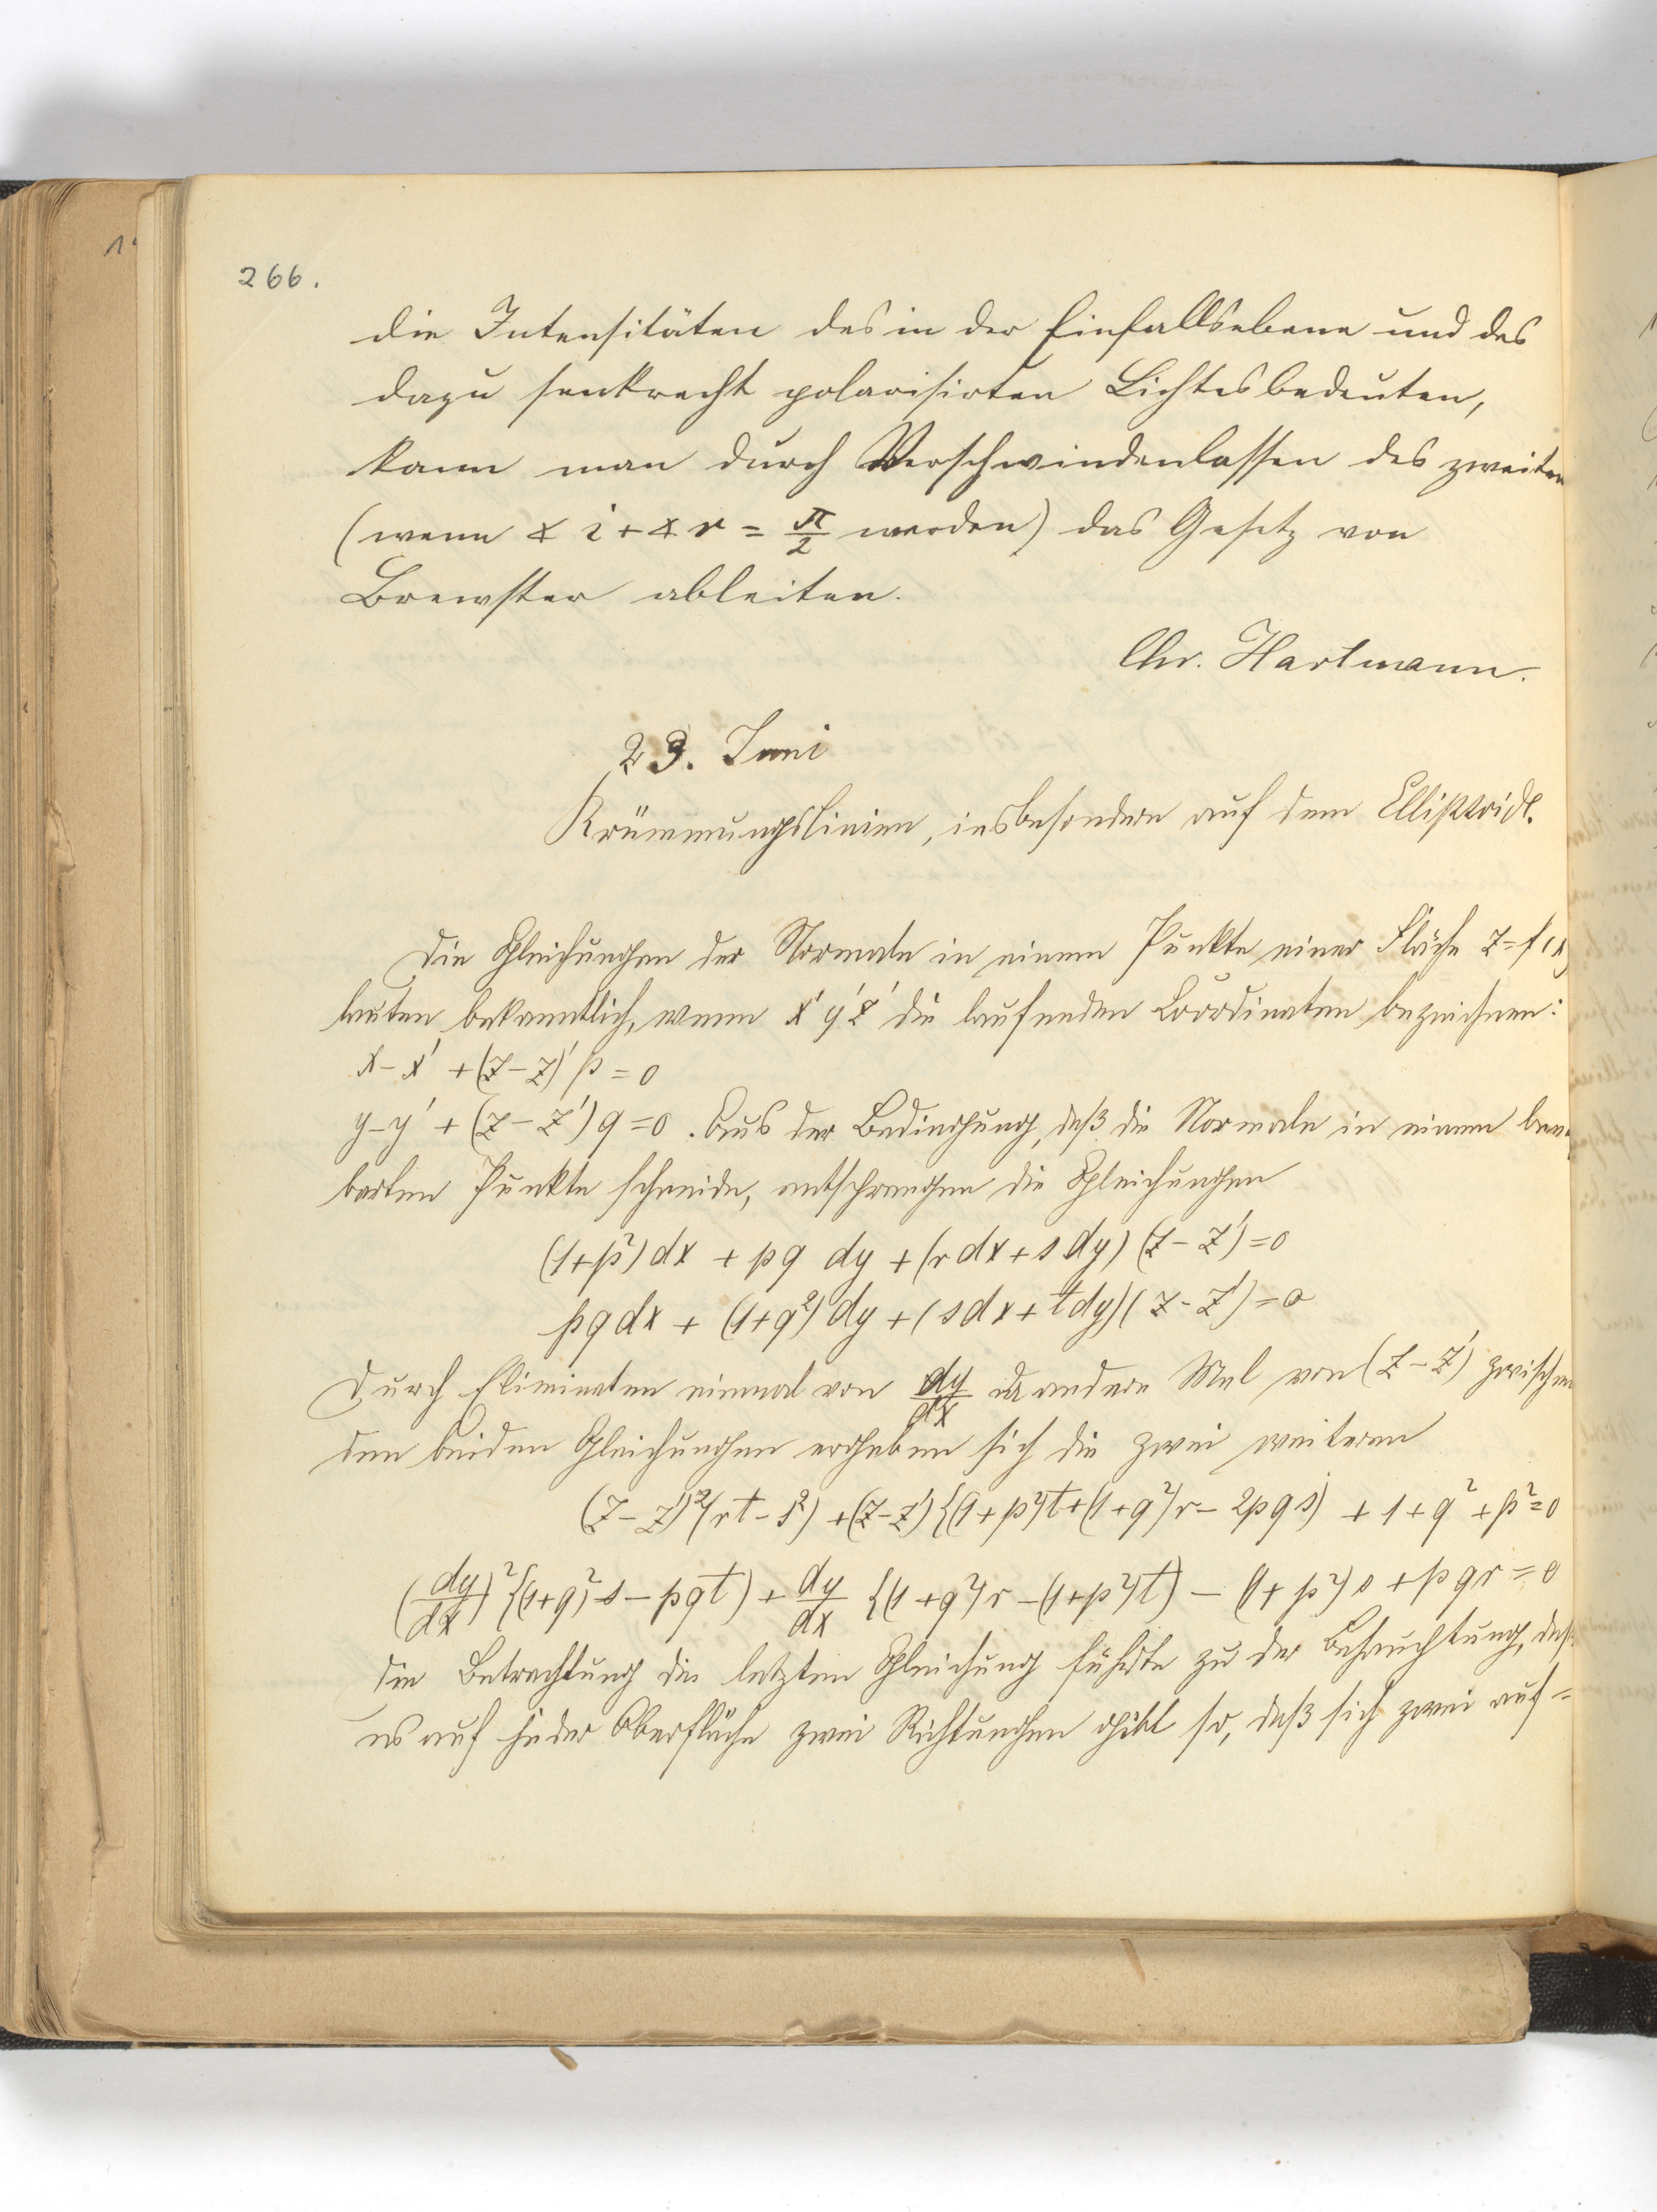 266.
die Intensitäten des in der Einfallsebene und des
dazu senkrecht polarisirten Lichtes bedeuten,
kann man durch Verschwindenlassen des zweiten
(wenn ∢ i + ∢ r = π/2 werden) das Gesetz von
Brewster ableiten.
Chr. Hartmann.
23. Juni
Krümmungslinien, insbesondere auf dem Ellipsoid.
Die Gleichungen der Normale in einem Punkte einer Fläche z = f(x
lauten bekanntlich, wenn x' y' z' die laufenden Coordinaten bezeichnen:
x - x' + (z - z)' p = 0
y - y' + (z - z') q = 0. Aus der Bedingung, daß die Normale in einem
barten Punkte schneide, entsprangen die Gleichungen
(1+p²) dx + pq dy + (r dx + s dy) (z - z') = 0
pq dx + (1+q²) dy + (s dx + t dy) (z - z') = 0
Durch Elimination einmal von dy/dx das andere Mal von (z - z') zwischen
den beiden Gleichungen ergeben sich die zwei weiteren
(z - z')² (rt - s²) + (z - z') {(1+p²)t + (1+q²) r - 2pqs) + 1 + q² + p² = 0
(dy/dx)² {(1+q²) s - pqt) + dy/dx {(1+q²) r - (1+p²) t) - (1+p²) s + pqr = 0
Die Betrachtung der letzten Gleichung führte zu der
es auf jeder Oberfläche zwei Richtungen gibt so, daß sich zwei auf=